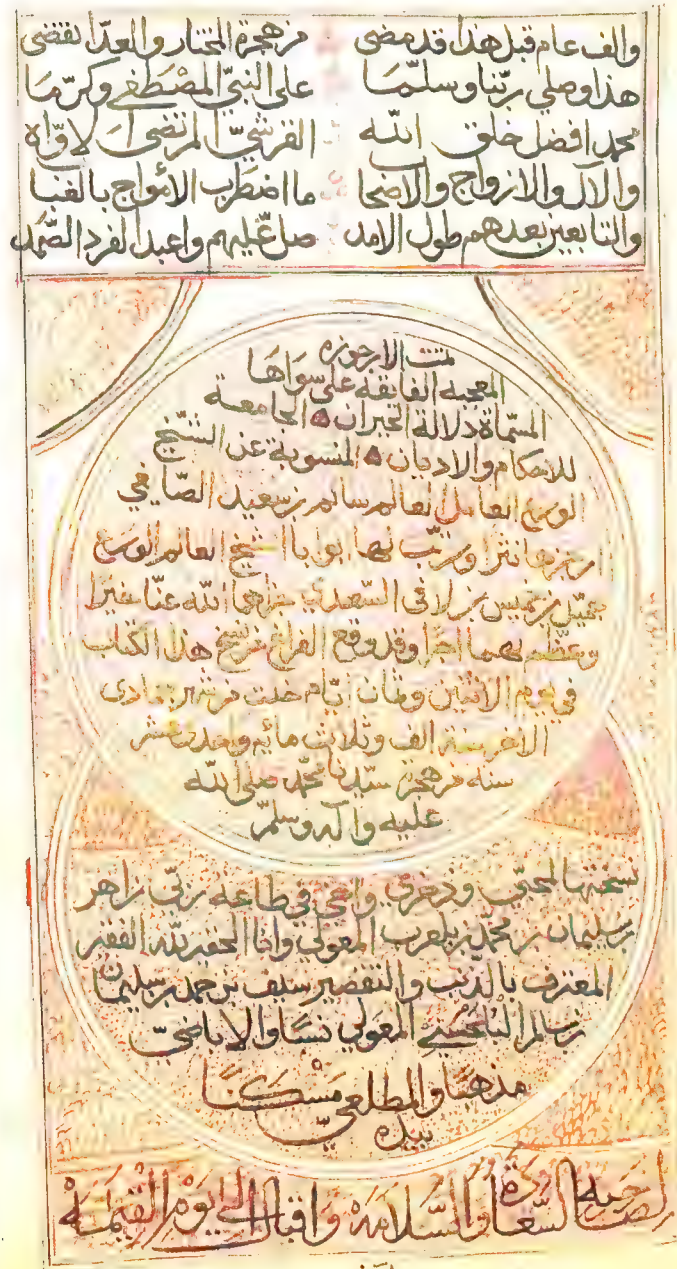 والف عام قبل هذا قد مضى من هجرة المختار والعد انقضى
هذا وصلى ربنا وسلما على النبي المصطفى وكرما
محمد افضل خلق الله القرشي المرتضى الاواه
والآل والازواج والاصحا ما اضطرب الأمواج بالغبا
والتابعين بعدهم طول الامد صل عليهم واعبد الفرد الصمد
تمت الارجوزة
المعجبه الفايقه على سواها
المسماة دلالة الحيران الجامعة
للاحكام والاديان المنسوبة عن الشيخ
الورع العامل العالم سالم بن سعيد الصايغي
ارجزها نثرا ورتب لها ابوابا الشيخ العالم الورع
جميل بن خميس بن لافي السعدي جزاهما الله عنا خيرا
وعظم لهما اجرا وقد وقع الفراغ من نسخ هذا الكتاب
في يوم الاثنين وثمان ايام خلت من شهر جمادى
الاخر سنة الف وثلاث مائه واحدى عشر
سنه من هجرة سيدنا محمد صلى الله
عليه وآله وسلم
نسختها لمحبي وذخري واخي في طاعة ربي زاهر
بن سليمان بن محمد بن بلعرب المعولي وانا الحقير لله الفقير
المعترف بالذنب والتقصير سيف بن حمد بن سليمان
بن سالم البلحسني المعولي نسبا والاباضي
مذهبا والمطلعي مسكنا
بيده
لصاحبه السعادة والسلامة واقبال الى يوم القيمة